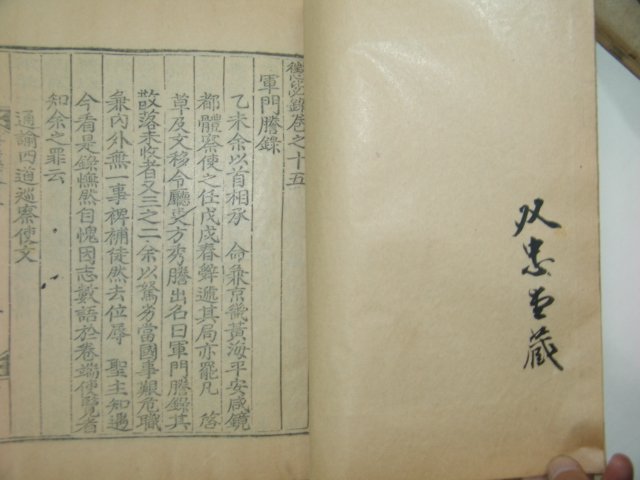 双忠堂蔵
懲毖錄卷之十五
軍門謄錄
乙未余以首相承 命兼京畿黃海平安咸鏡
都體察使之任戊戌春辭遞其局亦罷凡 啓
草及文移令廳吏方秀謄出名曰軍門謄錄其
散落未收者又三之二余以駑劣當國事艱危職
兼內外無一事裨補徒然去位辱 聖主知遇
今看是錄憮然自愧因志數語於卷端使覽者
知余之罪云
通諭四道巡察使文